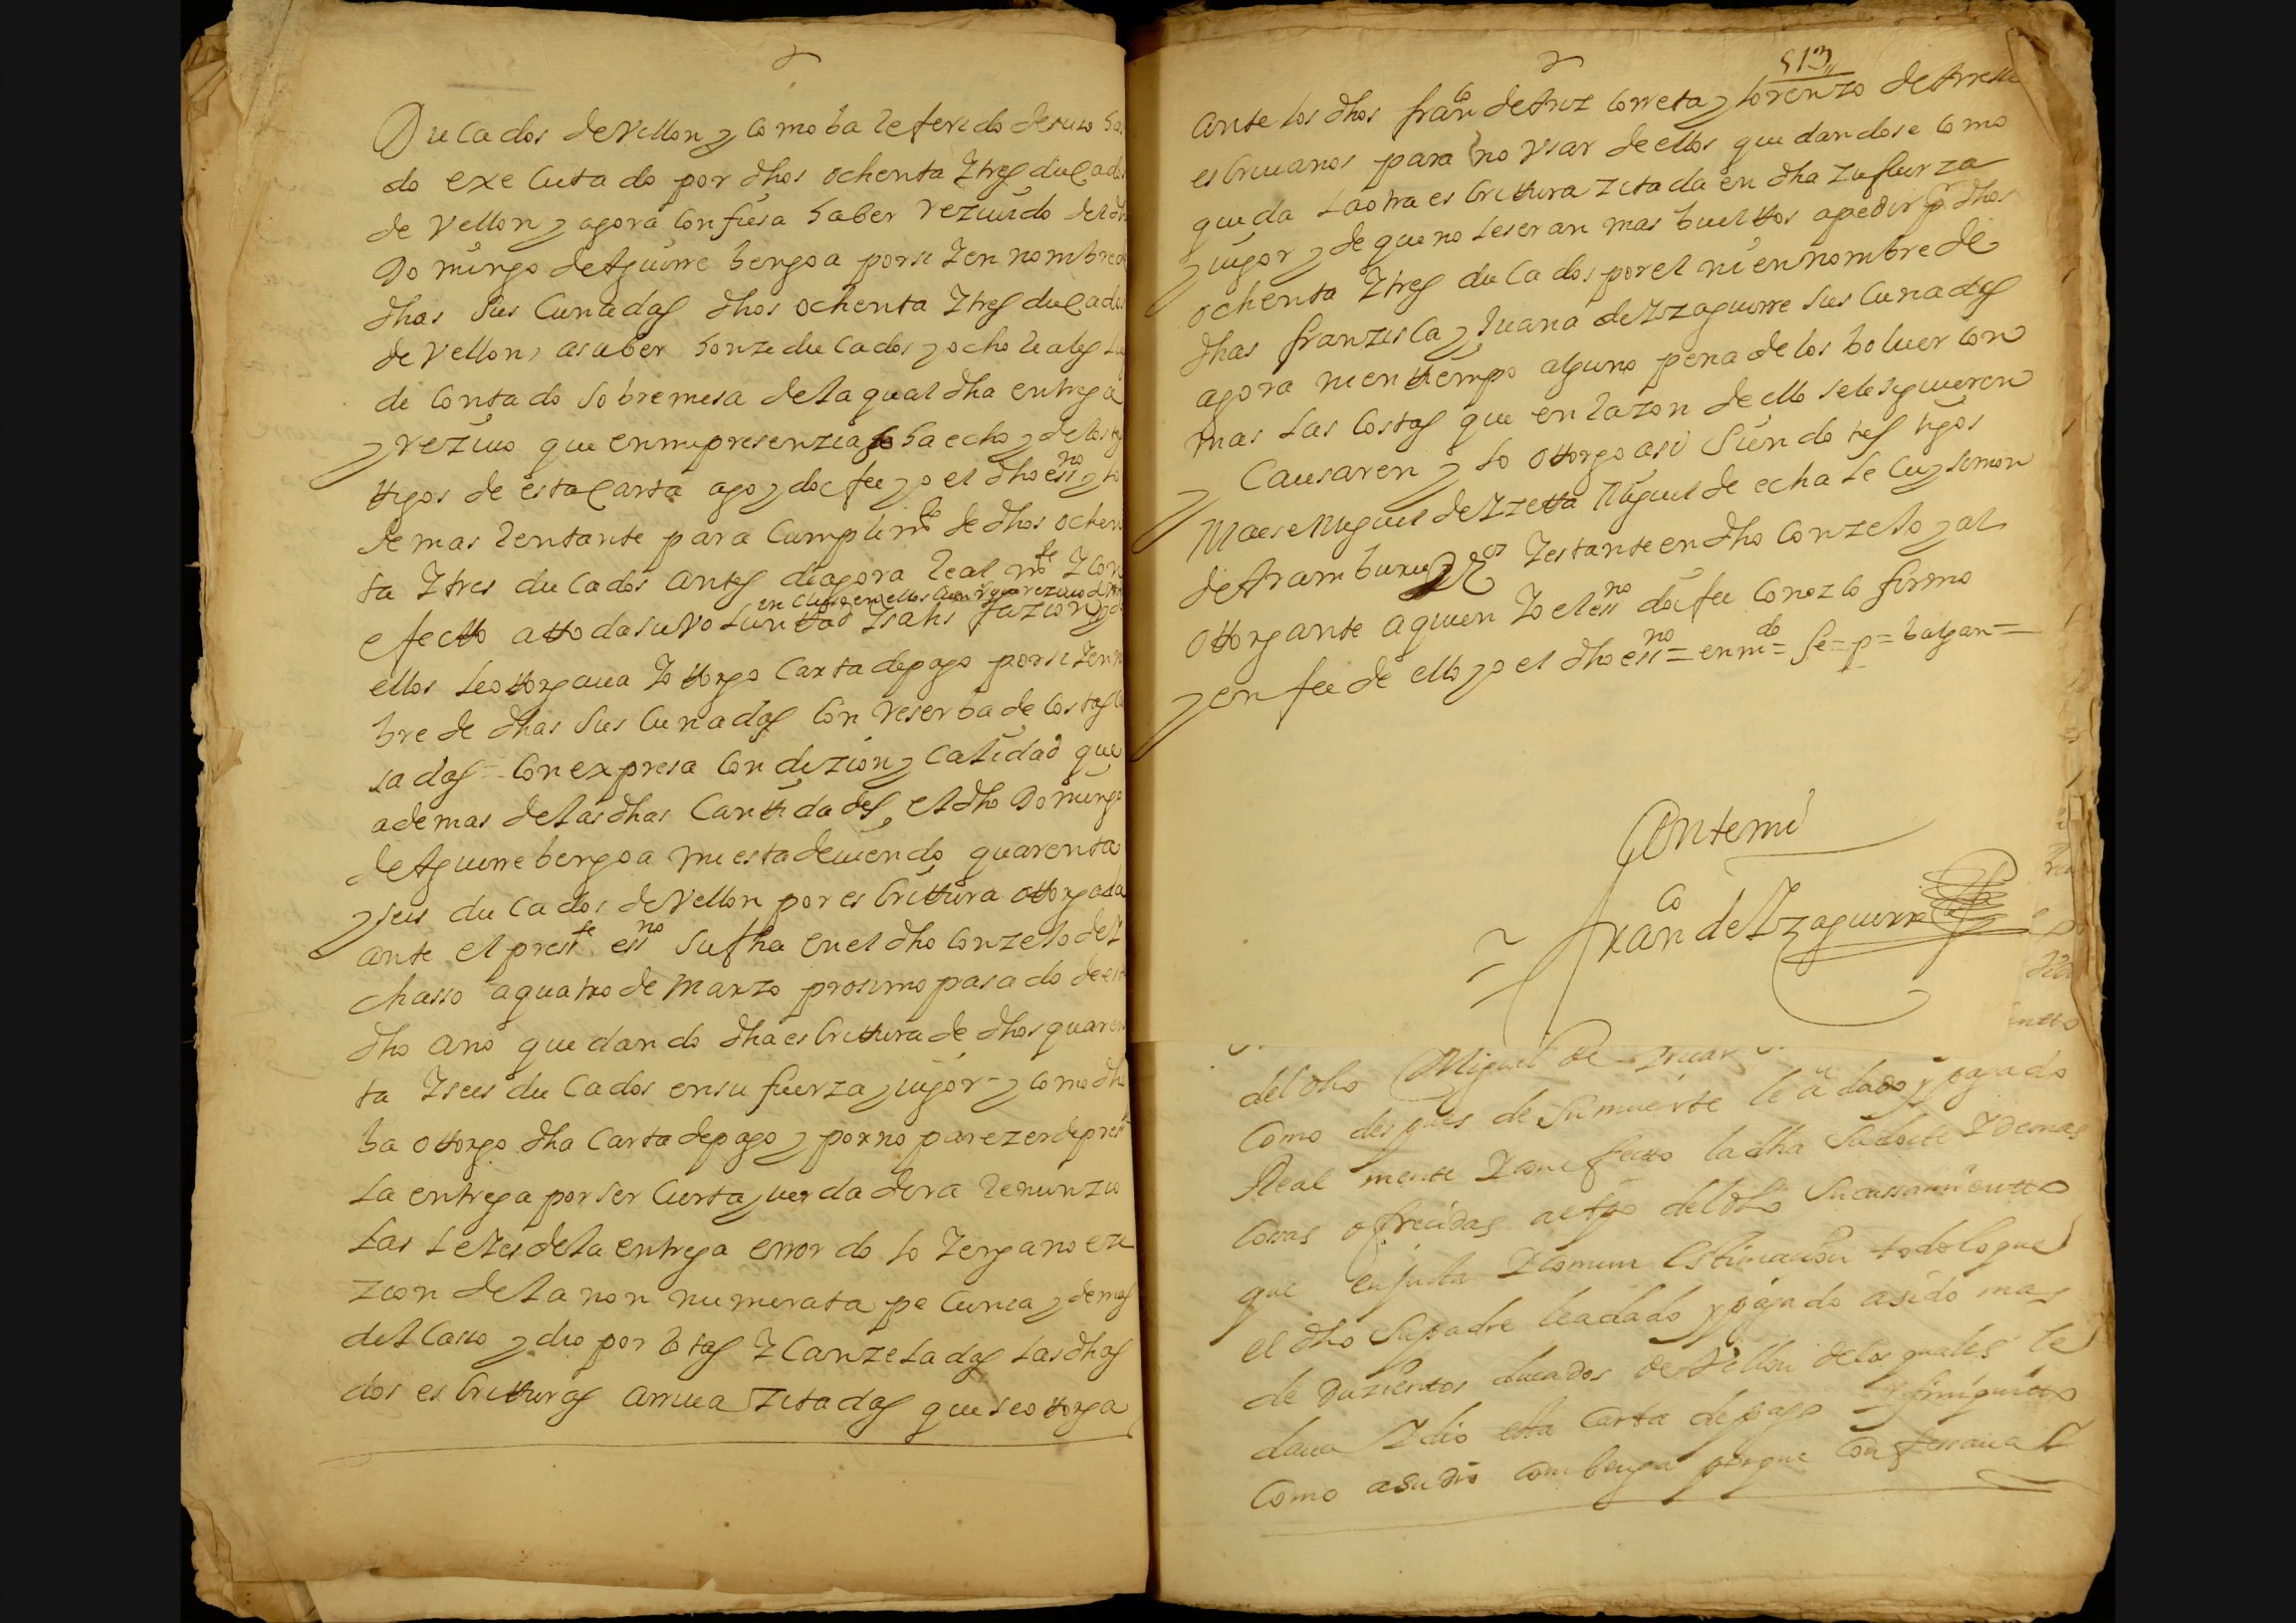 Ducados de Vellon y como ba Referido desuso
do executado por dhos ochenta Y tres ducados
de Vellon y agora confiesa haber reziuido del dho
Domingo de Aguirre bengoa por si Y en nombre de
dhas sus Cunadas dhos ochenta Y tres ducados
de Vellon, a saber honze ducados y ocho Reales
de Contado sobre mesa de la qual dha entrega
y reziuo que en mi presenzia se ha echo y de los tes
tigos de esta Carta ago y doi fee yo el dho essno y lo
demas Restante para Cumplimto de dhos ochen
ta Y tres ducados antes de agora Real mte Y con
efectto a ttoda su Voluntad
ellos le ottorgaua Y ottorgo Carta de pago por si Y en
bre de dhas sus Cunadas con reserba de costas
sadas = con expresa condizion y calidad que
ademas de las dhas Canttidades, el dho Domingo
de Aguirre bengoa me esta deuiendo quarenta
y seis ducados de Vellon por escrittura ottorgada
ante el preste essno su fha en el dho conzejo de
chasso a quatro de Marzo prosimo pasado de este
dho ano quedando dha escrittura de dhos quaren
ta Y seis ducados en su fuerza y uigor = y como dho
ba ottorgo dha Carta de pago y por no parezer de preste
la entrega por ser Cierta y uerdadera Renunzio
las leies de la entrega error dolo Y engano exe
zion de la non numerata pecunia y demas
del Casso y dio por Rotas Y Canzeladas las dhas
dos escritturas arriua Zitadas que se ottorga
513
ante los dhos franco de Aroz correta y lorenzo de
escriuanos para no Vsar de ellos quedandose como
queda la otra escrittura Zitada en dha Zu fuerza
y uigor y de que no le seran mas bueltos a pedir dhos
ochenta Y tres ducados por el ni en nombre de
dhas franzisca y Juana de Yzaguirre sus Cunadas
agora ni en tiempo alguno pena de los boluer con
mas las Costas que en Razon de ello se le siguieren
y Causaren y lo ottorgo asi siendo tes tigos
Maese Miguel de Yzetta Miguel de echaleCu y simon
de Aramburu Vos Y estante en dho Conzejo y al
ottorgante a quien Yo el essno doi fee conozco firmo
y en fee de ello yo el dho essno = enmdo = se = p =
Antemi
franco de Yzaguirre
del dho Miguel de
Como despues de su muerte le a dado y pagado
Real mente Y con efecto la dha su dote Y demas
cosas ofrecidas al tpo del dho su cassamientto
que en justa Y comun Estimacion todo lo que
el dho su padre le a dado y pagado a sido mas
de Duzientos ducados de Vellon de los quales le
daua Y dio esta Carta de pago Y finiquitto
Como a su dro combenga porque confessaua